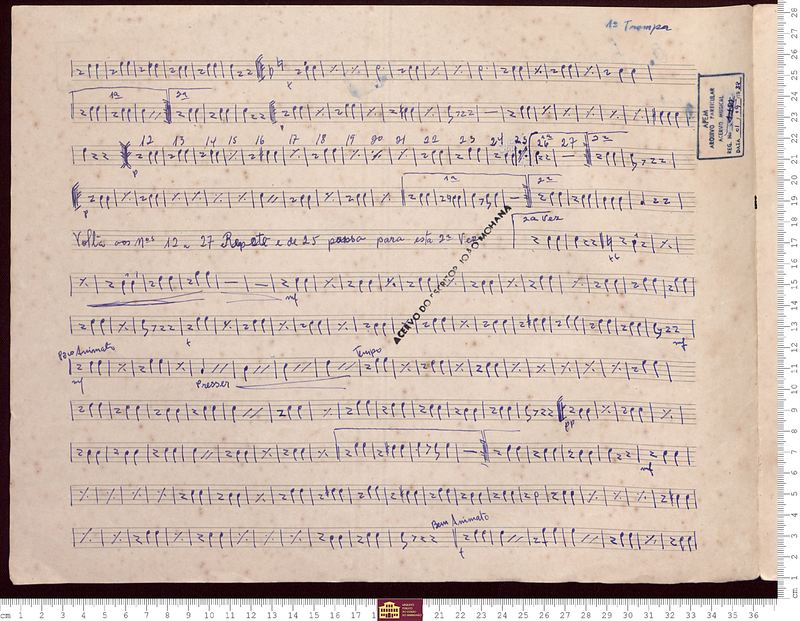 1ª Trompa
APEM
ARQUIVO PARTICULAR
ACERVO MUSICAL
REG. no
DATA
1ª 2ª
12 13 14 15 16 17 18 19 20 21 22 23 24 25 26 27 2ª
p
p
1ª 2ª
p
Volta aos nos 12 a 27 Repete e de 25 passa para esta 2ª Vez
2ª Vez
ACERVO DO ESCRITOR JOÃO MOHANA
mf
f
mf
Poco Animato
Tempo
mf
Presser
pp
mf
Bem Animato
f
cm 1 2 3 4 5 6 7 8 9 10 11 12 13 14 15 16 17 21 22 23 24 25 26 27 28 29 30 31 32 33 34 35 36